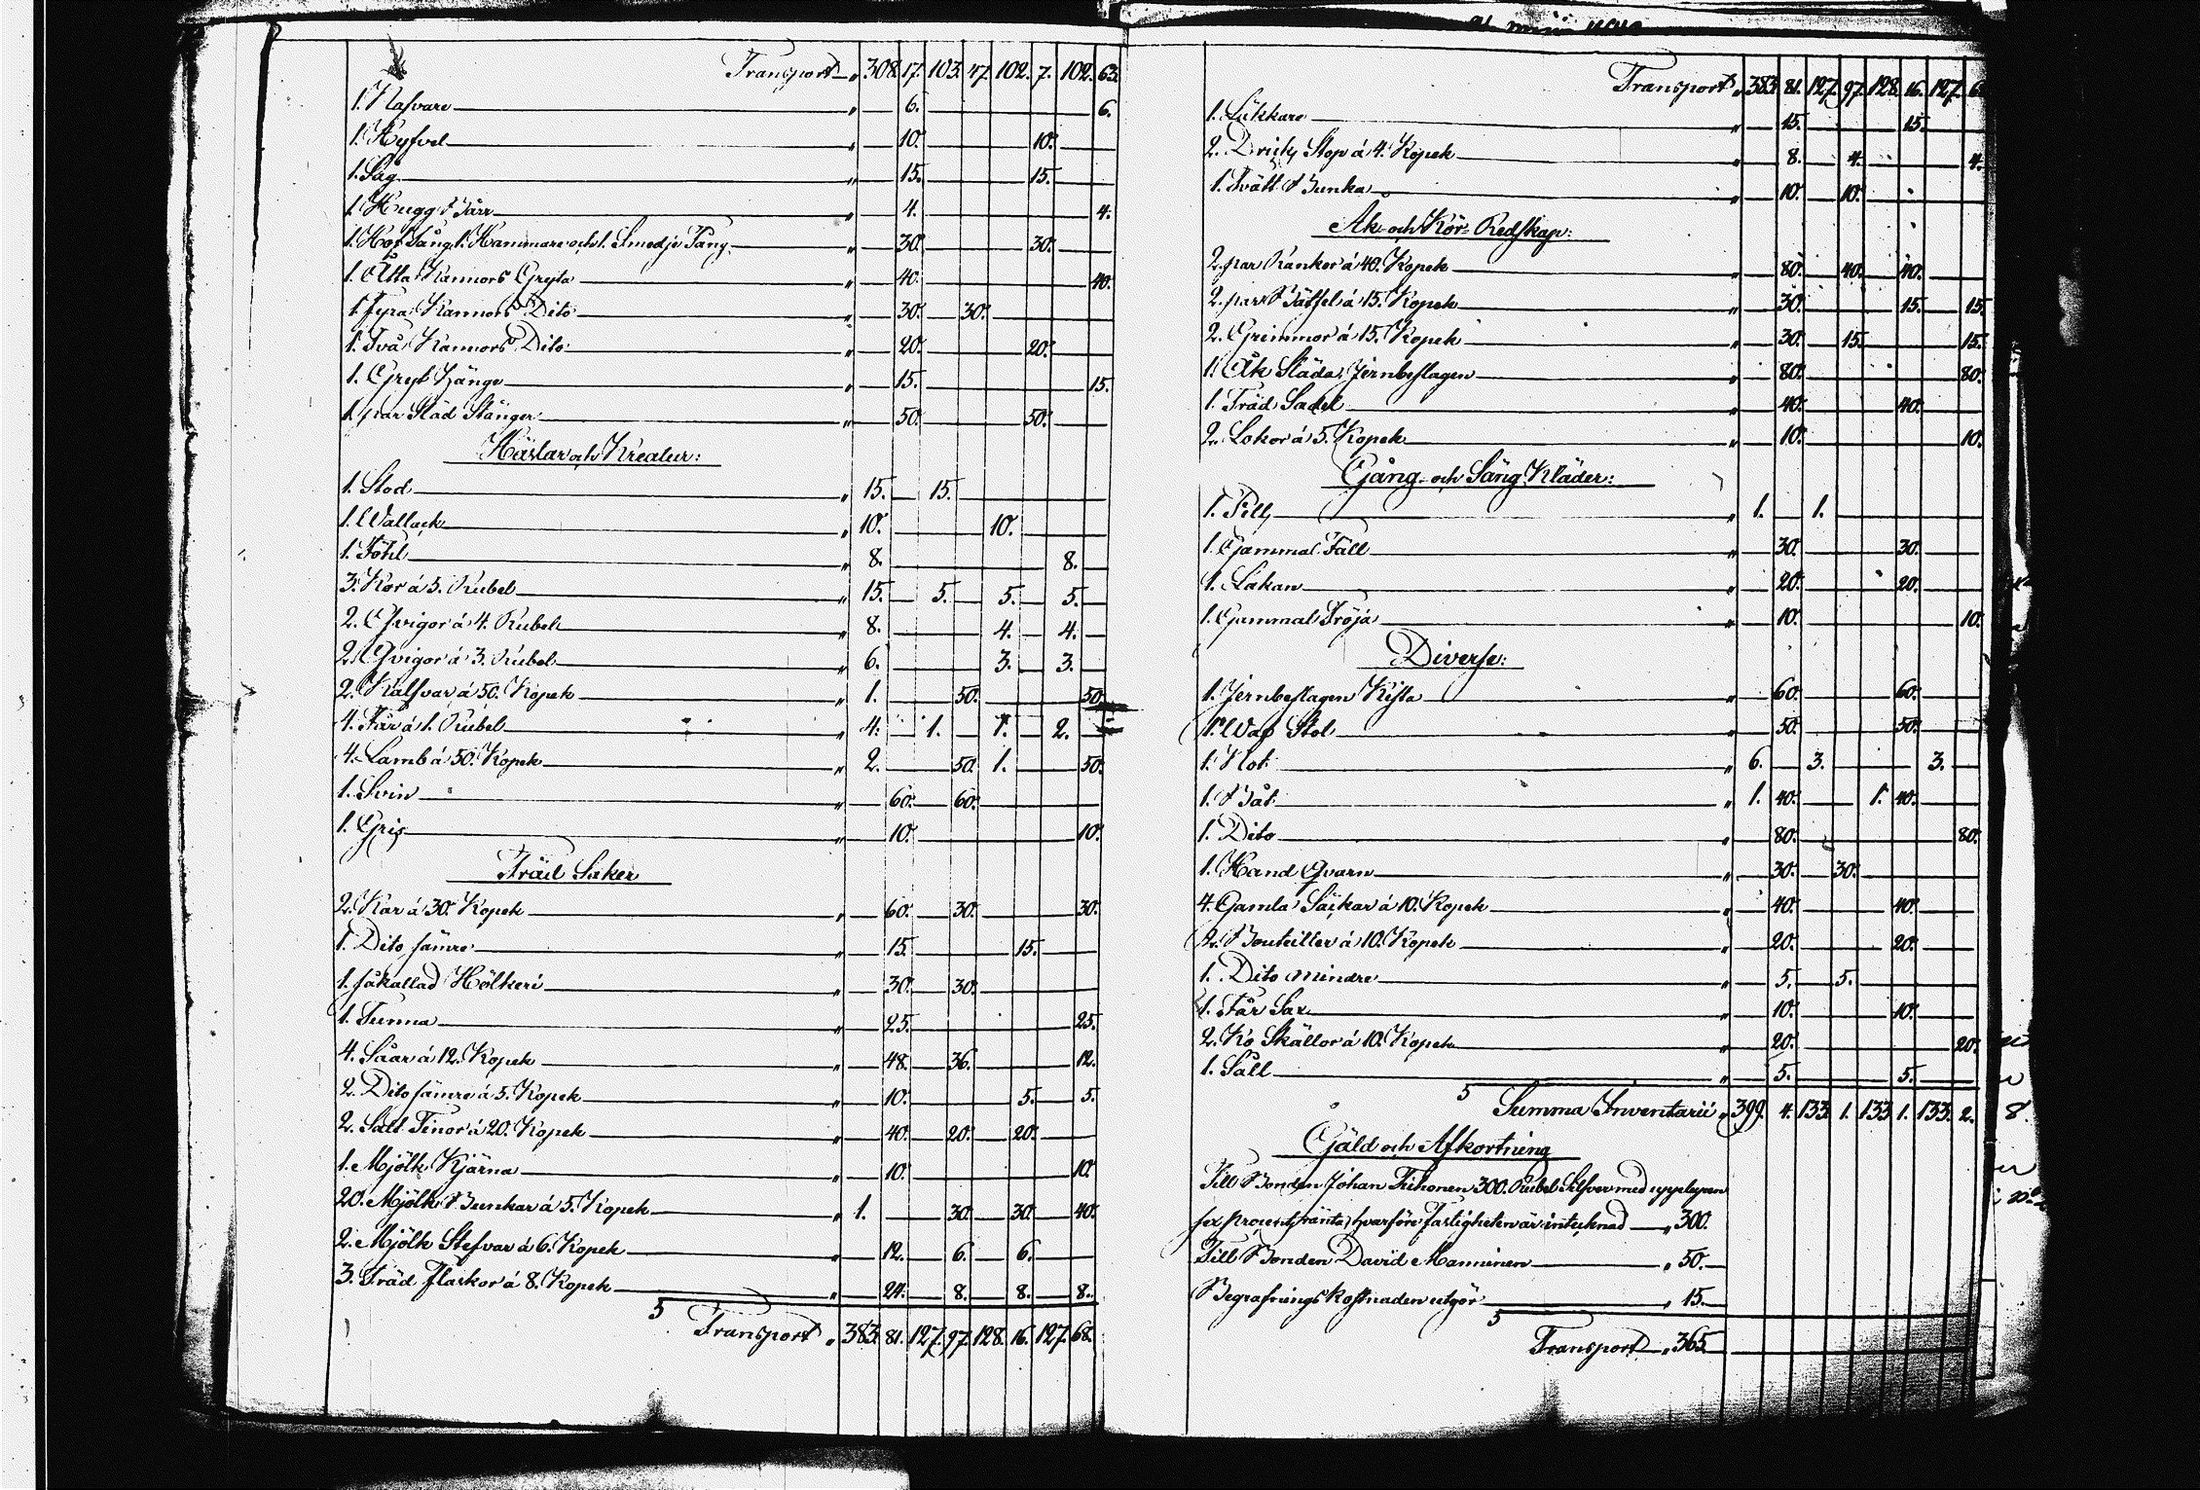 Transport " 308. 17. 103. 47. 102. 7. 102. 63.
1. Nafvare " 6. 6.
1. Hyfvel " 10. 10.
1. Såg " 15. 15.
1. Hugg Järn " 4. 4.
1. Hof Tång, 1. Hammare och 1. Smedje Tång " 30. 30.
1. Åtta Kannors Gryta " 40. 40.
1. Fyra Kannors Dito " 30. 30.
1. Två Kannors Dito " 20. 20.
1. Gryt Hänge " 15. 15.
1. par Släd Stänger " 50. 50.
Hästar och Kreatur:
1. Stod " 15. 15.
1. Wallack " 10. 10.
1. Föhl " 8. 8.
3. Kor á 5. Rubel " 15. 5. 5. 5.
2. Qvigor á 4. Rubel " 8. 4. 4.
2. Qvigor á 3. Rubel " 6. 3. 3.
2. Kalfvar á 50. Kopek " 1. 50. 50.
4. Får á 1. Rubel " 4. 1. 1. 2.
4. Lamb á 50. Kopek " 2. 50. 1. 50.
1. Svin " 60. 60.
1. Gris " 10. 10.
Träd Saker
2. Kar á 30. Kopek " 60. 30. 30.
1. Dito sämre " 15. 15.
1. såkallad Hölkeri " 30. 30.
1. Tunna " 25. 25.
4. Såar á 12. Kopek " 48. 36. 12.
2. Dito sämre á 5. Kopek " 10. 5. 5.
2. Salt Tinor á 20. Kopek " 40. 20. 20.
1. Mjölk Kjärna " 10. 10.
20. Mjölk Bunkar á 5. Kopek " 1. 30. 30. 40.
2. Mjölk Stefvar á 6. Kopek " 12. 6. 6.
3. Träd Flaskor á 8. Kopek " 24. 8. 8. 8.
Transport " 383. 81. 127. 97. 128. 16. 127. 68.
Transport " 383. 81. 127. 97. 128. 16. 127. 6
1. Läkkare " 15. 15.
2. Dricks Stop á 4. Kopek " 8. 4. 4.
1. Tvätt Bunka " 10. 10.
Åk- och Kör-Redskap:
2. par Rankor á 40. Kopek " 80. 40. 40.
2. par Bätsel á 15. Kopek " 30. 15. 15.
2. Grimmor á 15. Kopek " 30. 15. 15.
1. Åk Släda, Jernbeslagen " 80. 80.
1. Träd Sadel " 40. 40.
2. Lokor á 5. Kopek " 10. 10.
Gång- och Säng Kläder:
1. Pills " 1. 1.
1. Gammal Fäll " 30. 30.
1. Lakan " 20. 20.
1. Gammal Tröja " 10. 10.
Diverse:
1. Jernbeslagen Kista " 60. 60.
1. Wäf Stol " 50. 50.
1. Not " 6. 3. 3.
1. Båt " 1. 40. 1. 40.
1. Dito " 80. 80.
1. Hand Qvarn " 30. 30.
4. Gamla Säckar á 10. Kopek " 40. 40.
2. Bouteiller á 10. Kopek " 20. 20.
1. Dito mindre " 5. 5.
1. Får Sax " 10. 10.
2. Ko Skällor á 10. Kopek " 20. 20.
1. Såll " 5. 5.
Summa Inventarii " 399. 4. 133. 1. 133. 1. 133. 2.
Gäld och Afkortning
Till Bonden Johan Tiihonen 300. Rubel Silfver med upplupen
sex procents ränta, hvarföre Fastigheten är intecknad " 300.
Till Bonden David Manninen " 50.
Begrafnings Kostnaden utgör " 15.
Transport " 365.